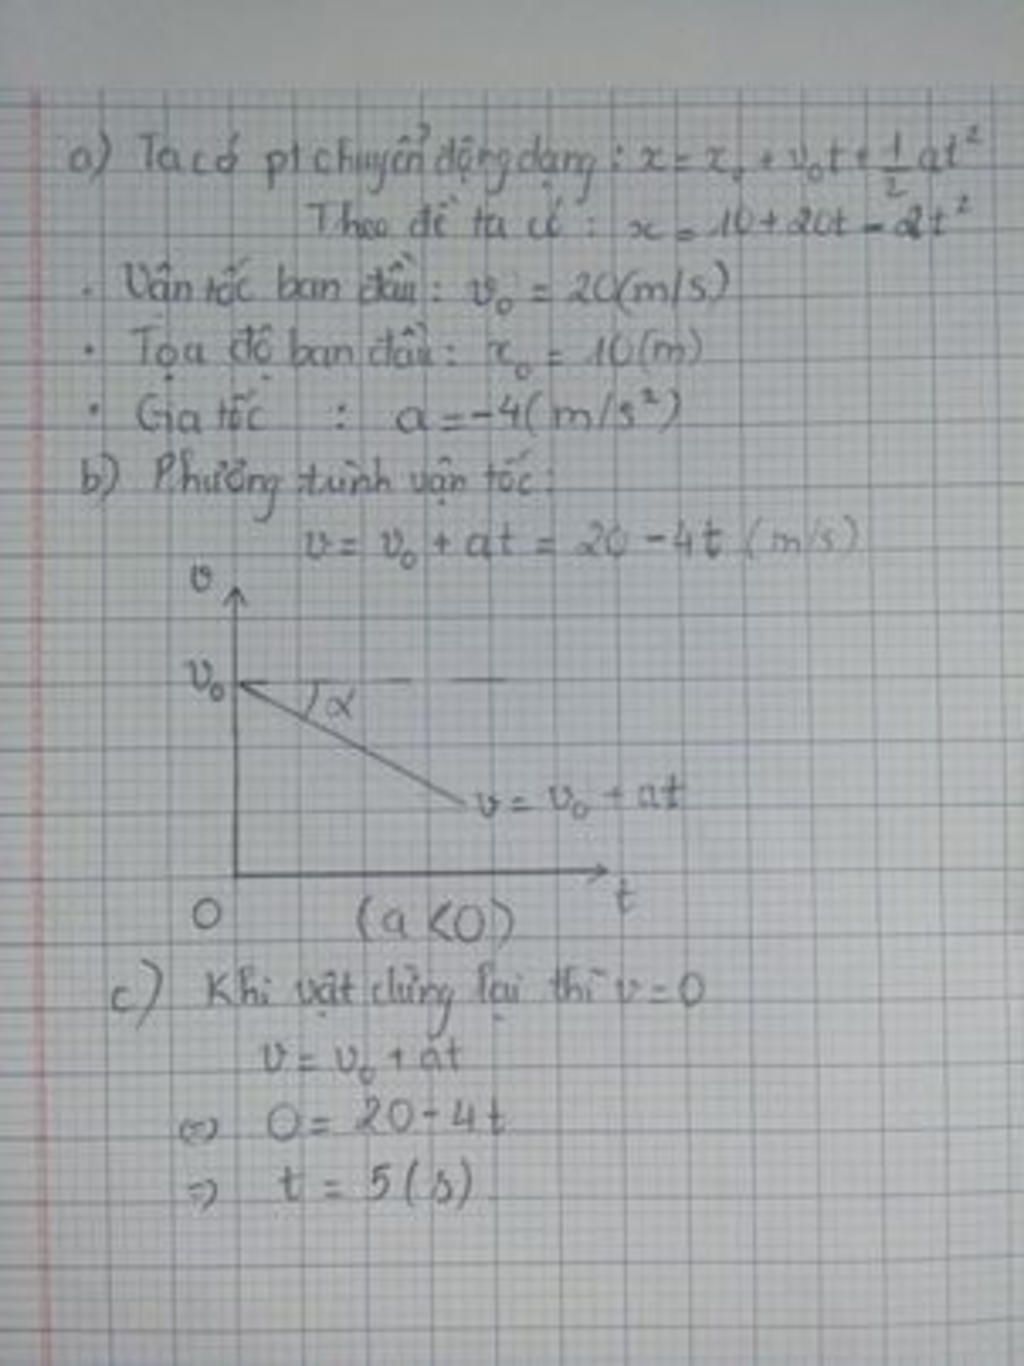 a) Ta có pt chuyển động dạng : x = x₀ + v₀t + 1/2 at²
Theo đề ta có : x = 10 + 20t - 2t²
. Vận tốc ban đầu : v₀ = 20(m/s)
. Tọa độ ban đầu : x₀ = 10(m)
. Gia tốc : a = -4(m/s²)
b) Phương trình vận tốc :
v = v₀ + at = 20 - 4t (m/s)
v
v₀
α
v = v₀ + at
O
t
(a < 0)
c) Khi vật dừng lại thì v = 0
v = v₀ + at
⇔ 0 = 20 - 4t
⇒ t = 5 (s)